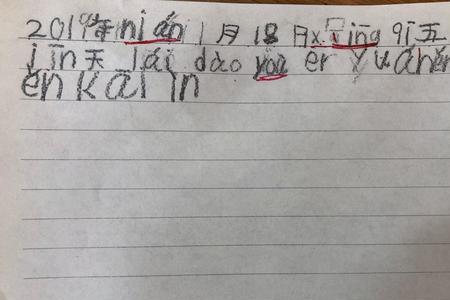 2019年nián 1月18日xīng qī五
jīn天 lái dào yòu ér yuán hěn
ěn kāi īn